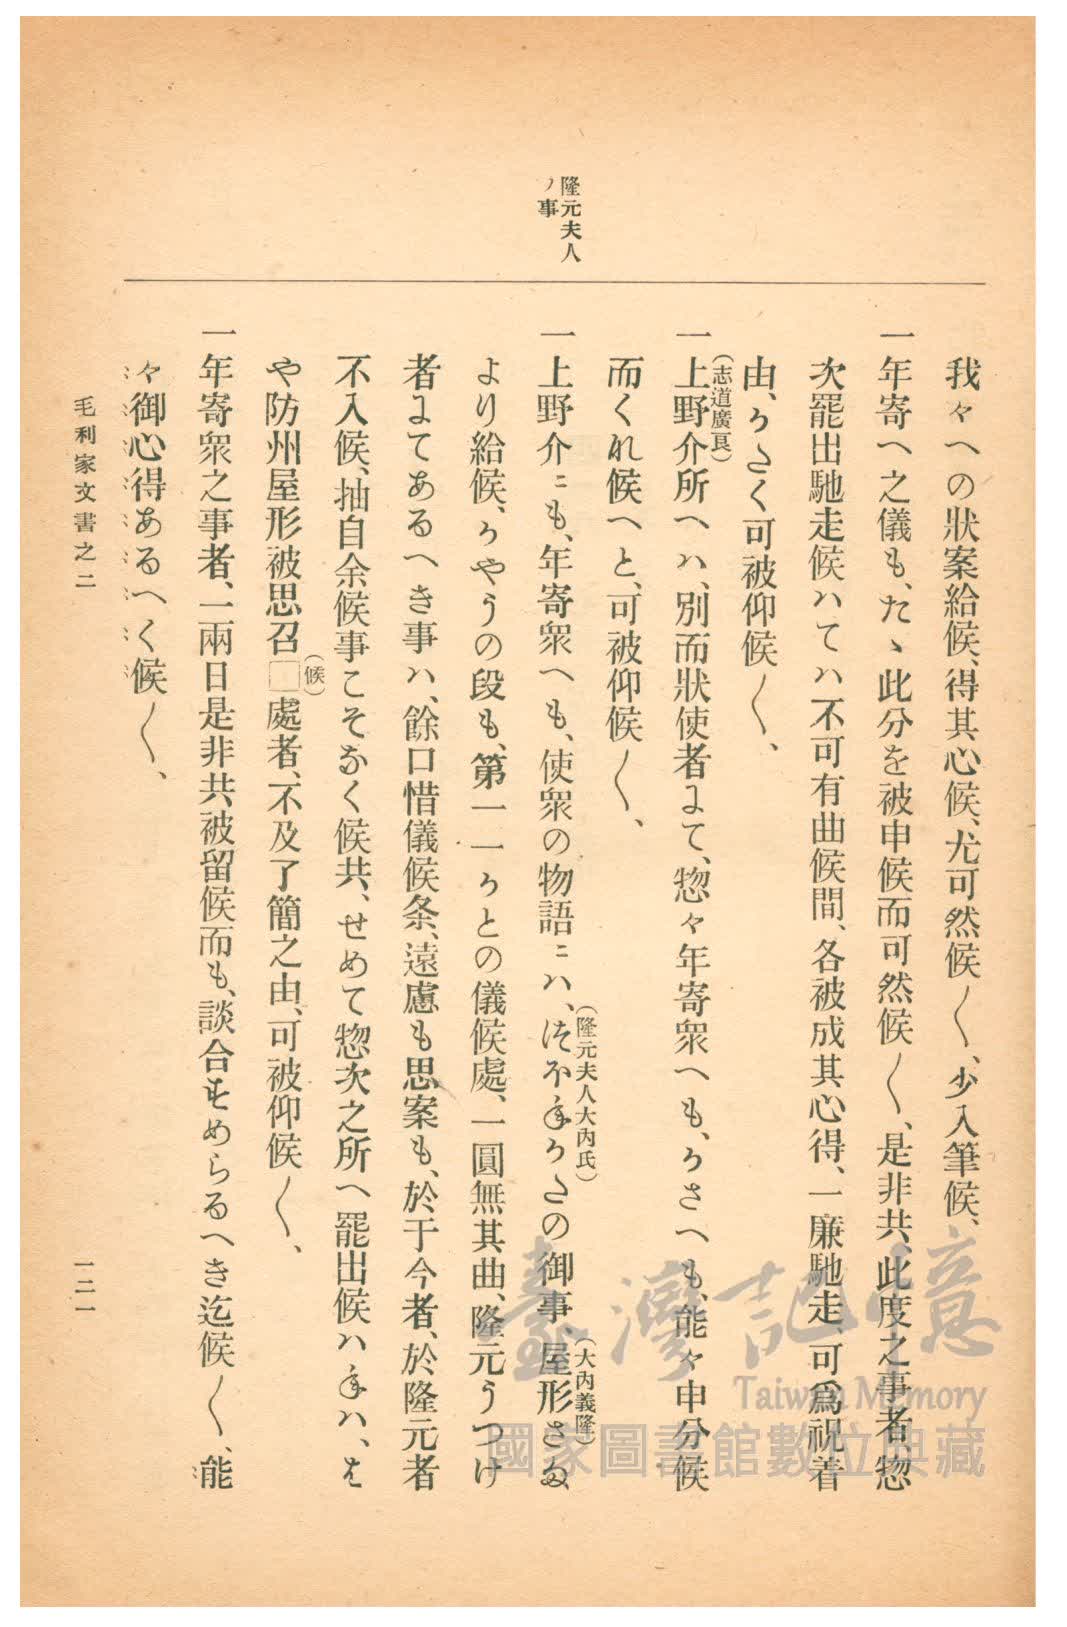 隆元夫人
ノ事
我々への狀案給候、得其心候、尤可然候〱、少入筆候、
一年寄へ之儀も、たゝ此分を被申候而可然候〱、是非共、此度之事者、惣
次罷出馳走候ハてハ不可有曲候間、各被成其心得、一廉馳走、可爲祝着
由、かたく可被仰候〱、
一上野介所へハ、別而狀使者にて、惣々年寄衆へも、かさへも、能々申分候
(志道廣良)
而くれ候へと、可被仰候〱、
一上野介ニも、年寄衆へも、使衆の物語ニハ、はつほねかたの御事、屋形さま
(隆元夫人大内氏)
(大内義隆)
より給候、かやうの段も、第一一かとの儀候處、一圓無其曲、隆元うつけ
者にてあるへき事ハ、餘口惜儀候条、遠慮も思案も、於于今者、於隆元者
不入候、抽自余候事こそなく候共、せめて惣次之所へ罷出候ハねハ、は
や防州屋形被思召□處者、不及了簡之由、可被仰候〱、
(候)
一年寄衆之事者、一兩日是非共被留候而も、談合そめらるへき迄候〱、能
々御心得あるへく候〱、
毛利家文書之二
一二一
臺灣記憶
Taiwan Memory
國家圖書館數位典藏